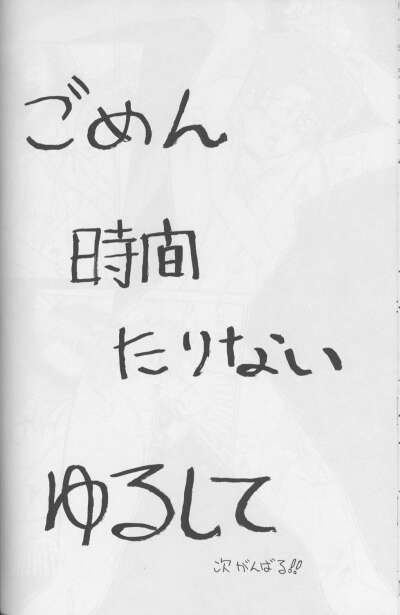 ごめん
時間
たりない
ゆるして
次がんばる!!